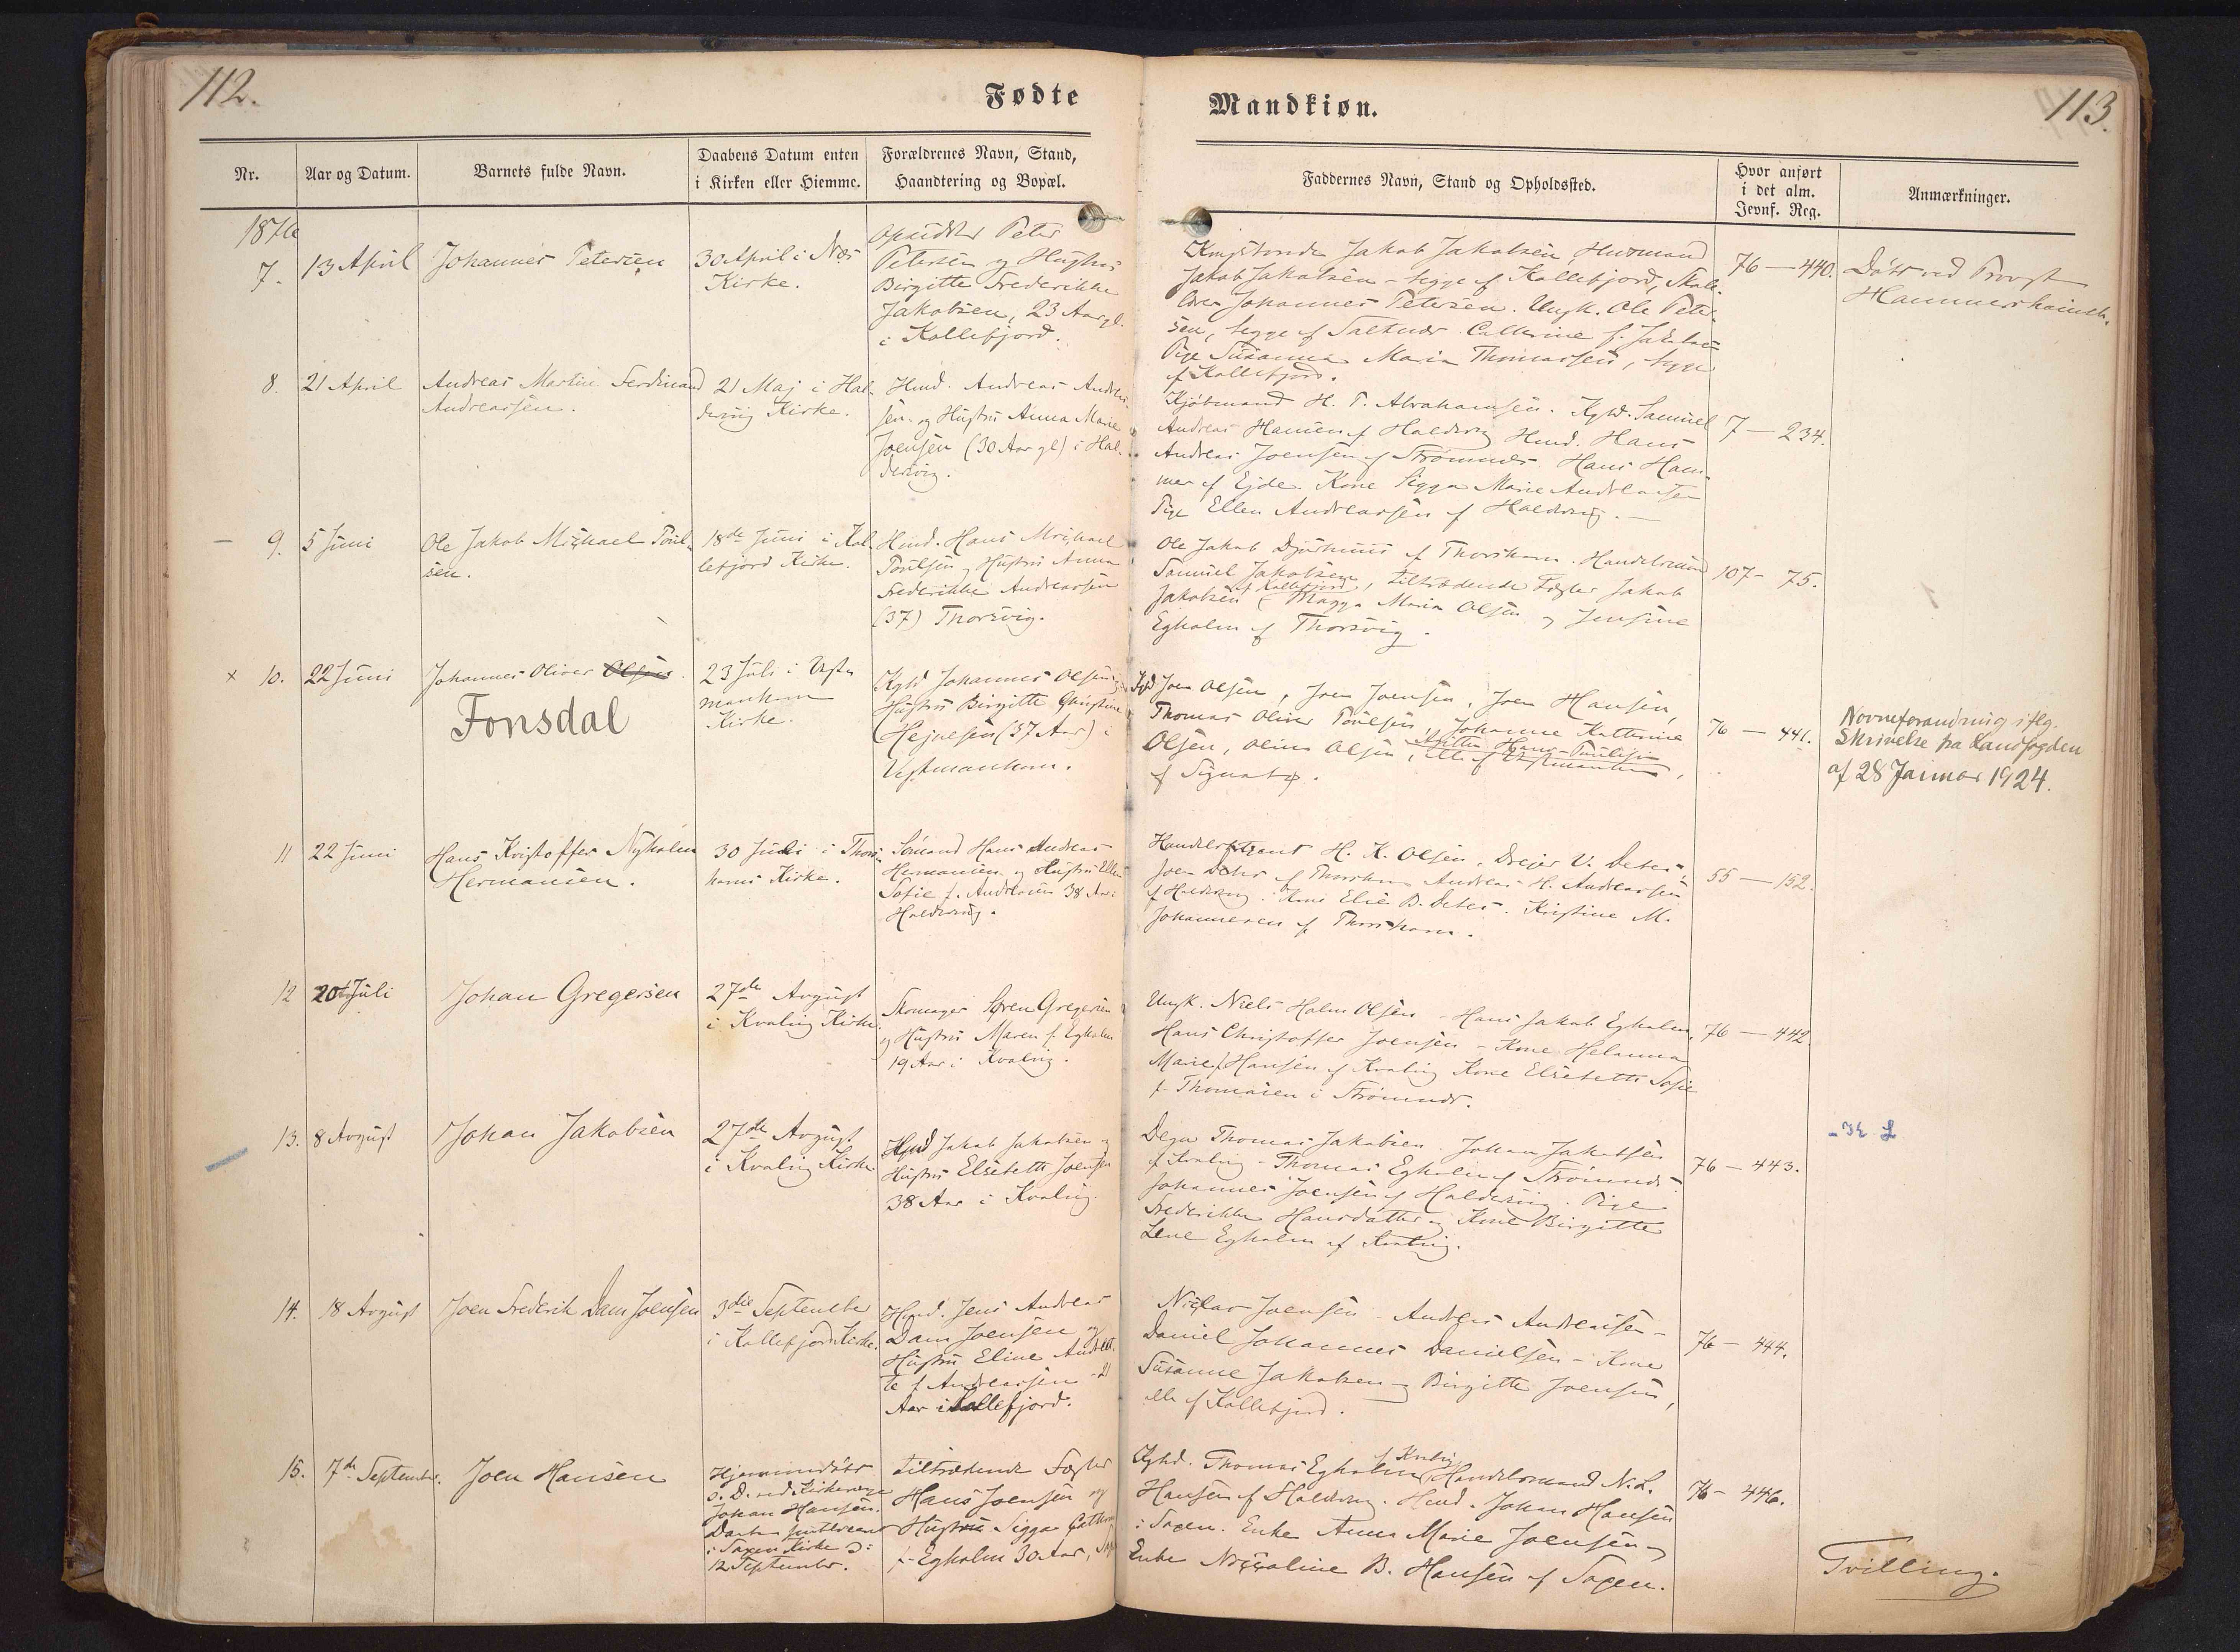 112.
Fødte
Nr.
Aar og Datum.
Barnets fulde Navn.
Daabens Datum enten
i Kirken eller Hiemme.
Forældrenes Navn, Stand,
Haandtering og Bopæl.
1876
7.
13 April
Johannes Petersen
30 April i Næs
Kirke.
Opsidder Peter
Petersen og Hustru
Birgitte Frederikke
Jakobsen, 23 Aar gl.
i Kollefjord.
8.
21 April
Andreas Martin Ferdinand
Andreassen.
21 Maj i Hal-
dersvig Kirke.
Hmd. Andreas Andreas-
sen og Hustru Anna Marie
Joensen (30 Aar gl) i Hal-
dersvig.
9.
5 Juni
Ole Jakob Michael Poul-
sen.
18de Juni i Kol-
lefjord Kirke.
Hmd. Hans Michael
Poulsen og Hustru Anna
Frederikke Andreassen
(37) Thorsvig.
x 10.
22 Juni
Johannes Oliver Olsen.
Fonsdal
23 Juli i Vest-
manhavn
Kirke.
Kgbd Johannes Olsen og
Hustru Birgitte Christine
Hejnesen (37 Aar) i
Vestmanhavn.
11
22 Juni
Hans Kristoffer Nyholm
Hermansen.
30 Juli i Thors-
havns Kirke.
Sømand Hans Andreas
Hermansen og Hustru Ellen
Sofie f. Andreasen 38 Aar i
Haldersvig.
12
20 Juli
Johan Gregersen
27de Avgust
i Kvalvig Kirke.
Skomager Søren Gregersen
og Hustru Maren f. Egholm
19 Aar i Kvalvig.
13.
8 Avgust
Johan Jakobsen
27de Avgust
i Kvalvig Kirke
Hmd Jakob Jakobsen og
Hustru Elsebeth Joensen
38 Aar i Kvalvig.
14.
18 Avgust
Joen Frederik Dam Joensen
3die September
i Kollefjord Kirke.
Hmd. Jens Andreas
Dam Joensen og
Hustru Eline Andrea
f. Andreassen 21
Aar i Kollefjord.
15.
7de September.
Joen Hansen
Hjemmedøbt
s. D. ved Kirkeværge
Johan Hansen.
Daaben publiceret
i Saxen Kirke d:
12 September.
tiltrædende Fæster
Hans Joensen og
Hustru Sigga Cathrine
f. Egholm 30 Aar,
Mandkiøn.
113.
Faddernes Navn, Stand og Opholdssted.
Hvor anført
i det alm.
Jevnf. Reg.
Anmærkninger.
Kongsbonde Jakob Jakobsen Husmand
Jakob Jakobsen – begge af Kollefjord, Skole-
lærer Johannes Petersen. Ungk. Ole Peter-
sen, begge af Saltnæs. Cathrine f. Jakobsen
Pige Susanna Maria Thomassen, begge
af Kollefjord.
76 – 440.
Døbt ved Provst
Hammershaimb.
Kjøbmand H. P. Abrahamsen. Kgbd. Samuel
Andreas Hansen af Haldersvig Hmd. Hans
Andreas Joensen af Strømnæs. Hans Ham-
mer af Ejde. Kone Sigga Marie Andreassen
Pige Ellen Andreassen af Haldersvig. –
7 – 234.
Ole Jakob Djurhuus af Thorshavn. Handelsmand
Samuel Jakobsen af Kollefjord, tiltrædende Fæster Jakob
Jakobsen, Magga Maria Olsen og Jensine
Egholm af Thorsvig.
107 – 75.
Kgbd Joen Olsen, Joen Joensen, Joen Hansen,
Thomas Oliver Poulsen, Johanne Kathrine
Olsen, Oline Olsen, alle af Vestmanhavn,
af Signabø.
76 – 441.
Navneforandring iflg.
Skrivelse fra Landfogden
af 28 Januar 1924.
H. K. Olsen, Drejer V. Debes,
Joen Debes af Thorshavn Andreas H. Andreassen
af Haldersvig. Kone Elie B. Debes. Kristine M.
Johannesen af Thorshavn.
55 – 152.
Ungk. Niels Holm Olsen – Hans Jakob Egholm,
Hans Christoffer Joensen – Kone Helanna
Marie f. Hansen af Kvalvig Kone Elsebeth Sofie
f. Thomasen i Strømnæs.
76 – 442.
Degn Thomas Jakobsen Johan Jakobsen
af Kvalvig – Thomas Egholm af Strømnæs
Johannes Joensen af Haldersvig. Pige
Frederikke Hansdatter og Kone Birgitte
Lene Egholm af Kvalvig.
76 – 443.
Niclas Joensen – Andreas Andreassen –
Daniel Johannes Danielsen – Kone
Susanne Jakobsen og Birgitte Joensen,
alle af Kollefjord.
76 – 444.
Kgbd. Thomas Egholm af Kvalvig, Handelsmand N. L.
Hansen af Haldersvig. Hmd. Johan Hansen
i Saxen. Enke Anna Marie Joensen og
Enke Niccoline B. Hansen af Saxen.
76 – 446.
Tvilling.